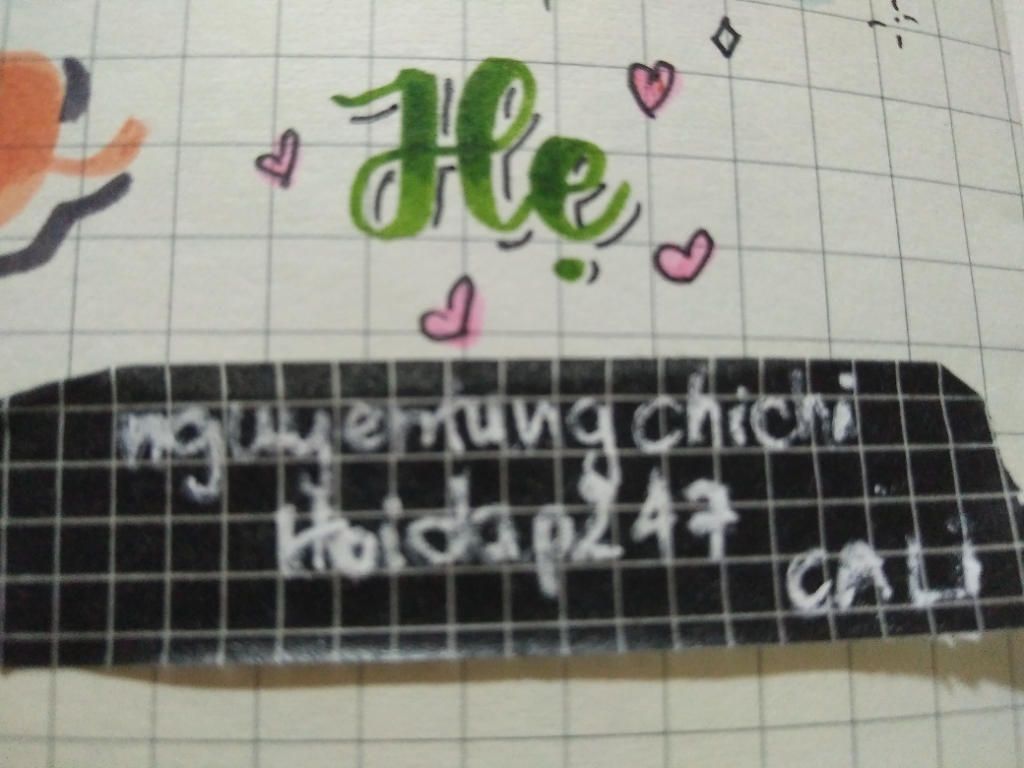 Hẹ
nguyentungchichi
Hoidap247
CALI